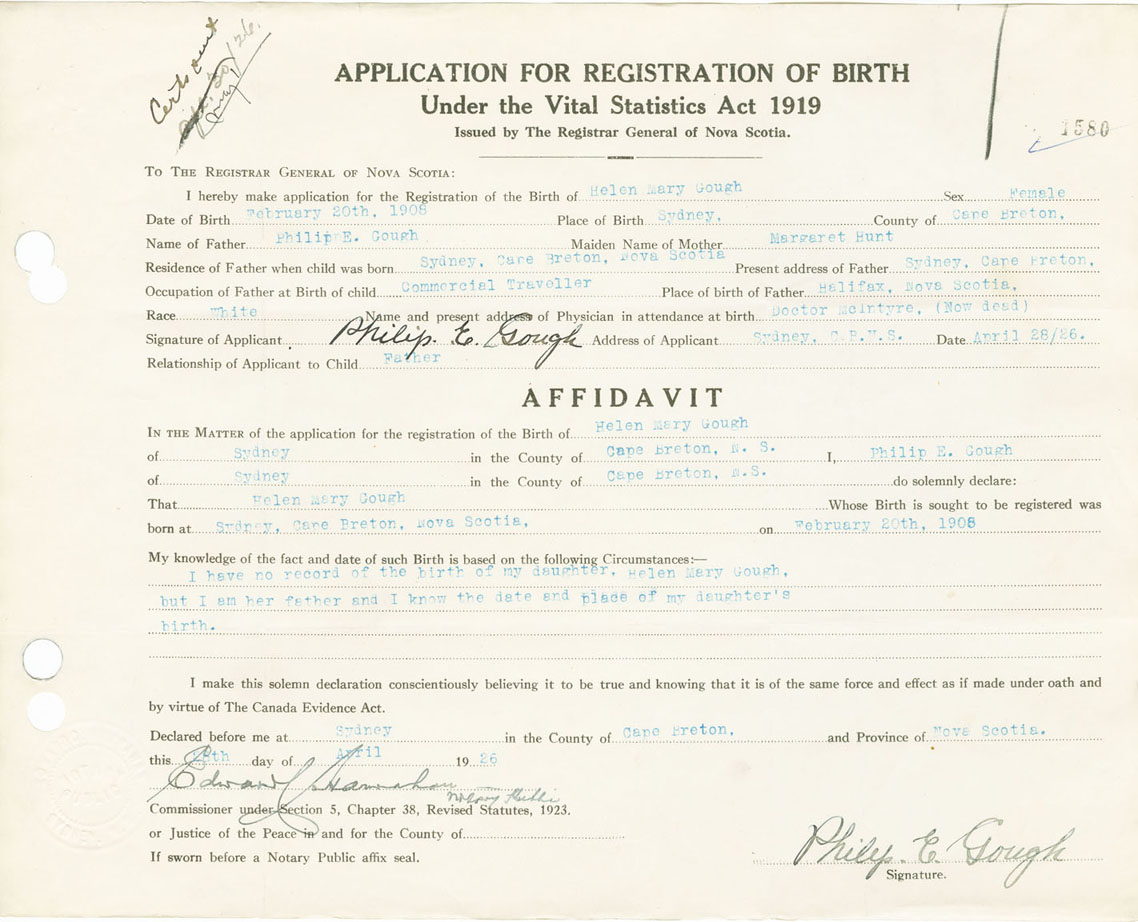 Certs out
30/26.
APPLICATION FOR REGISTRATION OF BIRTH
Under the Vital Statistics Act 1919
Issued by The Registrar General of Nova Scotia.
1580
To The Registrar General of Nova Scotia:
I hereby make application for the Registration of the Birth of Helen Mary Gough Sex Female
Date of Birth February 20th, 1908 Place of Birth Sydney, County of Cape Breton,
Name of Father Philip E. Gough Maiden Name of Mother Margaret Hunt
Residence of Father when child was born Sydney, Cape Breton, Nova Scotia Present address of Father Sydney, Cape Breton,
Occupation of Father at Birth of child Commercial Traveller Place of birth of Father Halifax, Nova Scotia,
Race White Name and present address of Physician in attendance at birth Doctor McIntyre, (Now dead)
Signature of Applicant Philip. E. Gough Address of Applicant Sydney, C.B.N.S. Date April 28/26.
Relationship of Applicant to Child Father
AFFIDAVIT
In the Matter of the application for the registration of the Birth of Helen Mary Gough
of Sydney in the County of Cape Breton, N. S. I, Philip E. Gough
of Sydney in the County of Cape Breton, N.S. do solemnly declare:
That Helen Mary Gough Whose Birth is sought to be registered was
born at Sydney, Cape Breton, Nova Scotia, on February 20th, 1908
My knowledge of the fact and date of such Birth is based on the following Circumstances:—
I have no record of the birth of my daughter, Helen Mary Gough,
but I am her father and I know the date and place of my daughter's
birth.
I make this solemn declaration conscientiously believing it to be true and knowing that it is of the same force and effect as if made under oath and
by virtue of The Canada Evidence Act.
Declared before me at Sydney in the County of Cape Breton, and Province of Nova Scotia.
this 28th day of April 19 26
Edward Hanrahan
Notary Public
Commissioner under Section 5, Chapter 38, Revised Statutes, 1923.
or Justice of the Peace in and for the County of
If sworn before a Notary Public affix seal.
Philip. E. Gough
Signature.